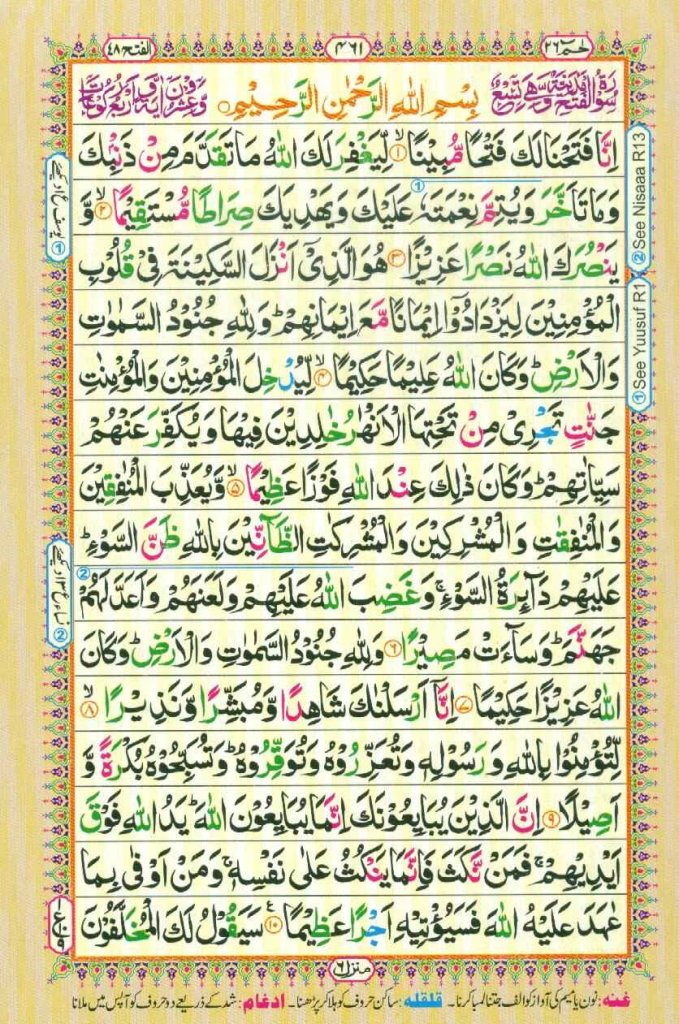 الفتح ٤٨
٤٦١
حٰمٓ ٢٦
سُوْرَةُ الْفَتْحِ مَدَنِيَّةٌ وَّهِيَ تِسْعٌ
بِسْمِ اللّٰهِ الرَّحْمٰنِ الرَّحِيْمِ
وَّعِشْرُوْنَ اٰيَةً وَّاَرْبَعُ رُكُوْعَاتٍ
اِنَّا فَتَحْنَا لَكَ فَتْحًا مُّبِيْنًا ۙ‏﴿۱﴾ لِّيَغْفِرَ لَكَ اللّٰهُ مَا تَقَدَّمَ مِنْ ذَنْۢبِكَ
وَمَا تَاَخَّرَ وَيُتِمَّ نِعْمَتَهٗ عَلَيْكَ وَيَهْدِيَكَ صِرَاطًا مُّسْتَقِيْمًا ۙ‏﴿۲﴾ وَّ
يَنْصُرَكَ اللّٰهُ نَصْرًا عَزِيْزًا ﴿۳﴾ هُوَ الَّذِيْۤ اَنْزَلَ السَّكِيْنَةَ فِيْ قُلُوْبِ
الْمُؤْمِنِيْنَ لِيَزْدَادُوْۤا اِيْمَانًا مَّعَ اِيْمَانِهِمْ ؕ وَلِلّٰهِ جُنُوْدُ السَّمٰوٰتِ
وَالْاَرْضِ ؕ وَكَانَ اللّٰهُ عَلِيْمًا حَكِيْمًا ۙ‏﴿۴﴾ لِّيُدْخِلَ الْمُؤْمِنِيْنَ وَالْمُؤْمِنٰتِ
جَنّٰتٍ تَجْرِيْ مِنْ تَحْتِهَا الْاَنْهٰرُ خٰلِدِيْنَ فِيْهَا وَيُكَفِّرَ عَنْهُمْ
سَيِّاٰتِهِمْ ؕ وَكَانَ ذٰلِكَ عِنْدَ اللّٰهِ فَوْزًا عَظِيْمًا ۙ‏﴿۵﴾ وَّيُعَذِّبَ الْمُنٰفِقِيْنَ
وَالْمُنٰفِقٰتِ وَالْمُشْرِكِيْنَ وَالْمُشْرِكٰتِ الظَّآنِّيْنَ بِاللّٰهِ ظَنَّ السَّوْءِ ؕ
عَلَيْهِمْ دَآئِرَةُ السَّوْءِ ۚ وَغَضِبَ اللّٰهُ عَلَيْهِمْ وَلَعَنَهُمْ وَاَعَدَّ لَهُمْ
جَهَنَّمَ ؕ وَسَآءَتْ مَصِيْرًا ﴿۶﴾ وَلِلّٰهِ جُنُوْدُ السَّمٰوٰتِ وَالْاَرْضِ ؕ وَكَانَ
اللّٰهُ عَزِيْزًا حَكِيْمًا ﴿۷﴾ اِنَّاۤ اَرْسَلْنٰكَ شَاهِدًا وَّمُبَشِّرًا وَّنَذِيْرًا ۙ‏﴿۸﴾
لِّتُؤْمِنُوْا بِاللّٰهِ وَرَسُوْلِهٖ وَتُعَزِّرُوْهُ وَتُوَقِّرُوْهُ ؕ وَتُسَبِّحُوْهُ بُكْرَةً وَّ
اَصِيْلًا ﴿۹﴾ اِنَّ الَّذِيْنَ يُبَايِعُوْنَكَ اِنَّمَا يُبَايِعُوْنَ اللّٰهَ ؕ يَدُ اللّٰهِ فَوْقَ
اَيْدِيْهِمْ ۚ فَمَنْ نَّكَثَ فَاِنَّمَا يَنْكُثُ عَلٰى نَفْسِهٖ ۚ وَمَنْ اَوْفٰى بِمَا
عٰهَدَ عَلَيْهُ اللّٰهَ فَسَيُؤْتِيْهِ اَجْرًا عَظِيْمًا ﴿۱۰﴾ سَيَقُوْلُ لَكَ الْمُخَلَّفُوْنَ
② See Nisaaa R13
① See Yuusuf R1
منزل ٦
غنه: نون یا میم کی آواز کو الف جتنا لمبا کرنا۔ قلقله: ساکن حروف کو ہلا کر پڑھنا۔ ادغام: شد کے ذریعے دو حروف کو آپس میں ملانا